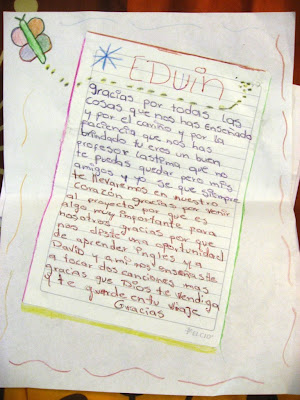 EDWin
gracias por todas las
cosas que nos has enseñado
y por el cariño y por la
paciencia que nos has
brindado tu eres un buen
profesor lastima que no
te puedas quedar pero mis
amigos y yo se que siempre
te llevaremos en nuestro
Corazón gracias por venir
al proyecto por que es
algo muy importante para
nosotros gracias por que
nos diste una oportunidad
de aprender ingles y a
David y ami nos enseñaste
a tocar dos canciones mas
gracias que Dios te vendiga
y te guarde en tu viaje
Gracias